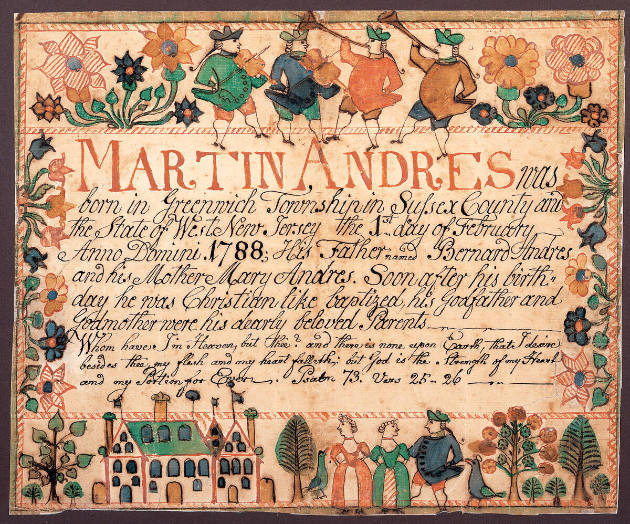 MARTIN ANDRES was
born in Greenwich Township in Sussex County and
the State of West New Jersey the 1st day of February
Anno Domini 1788; His Father named Bernard Andres
and his Mother Mary Andres. Soon after his birth-
day he was Christian like baptized, his Godfather and
Godmother were his dearly beloved Parents.
Whom have I in Heaven, but thee? and there is none upon Earth, that I desire
besides thee, my flesh and my heart falleth; but God is the Strength of my Heart
and my Portion for Ever. Psalm 73. Vers 25-26